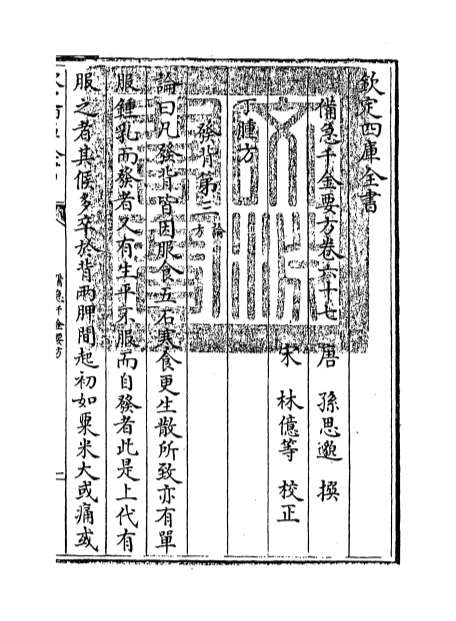 欽定四庫全書
備急千金要方卷六十七
唐 孫思邈 撰
宋 林億等 校正
丁腫方
發背第三 論 方
論曰凡發背皆因服食五石寒食更生散所致亦有單
服鍾乳而發者又有生平不服而自發者此是上代有
服之者其候多卒於背兩胛間起初如粟米大或痛或
備急千金要方